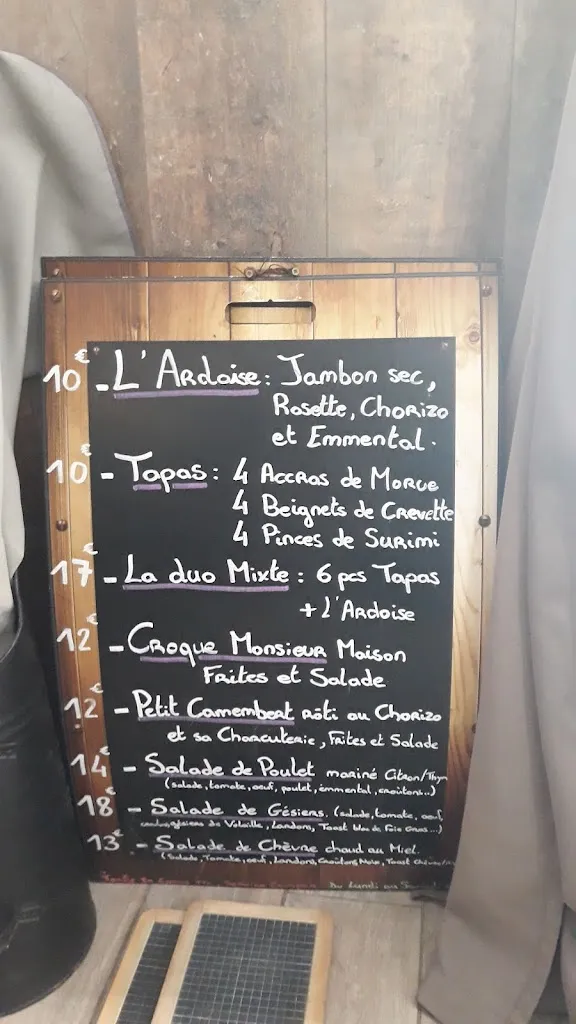 10€ - L'Ardoise : Jambon sec,
Rosette, Chorizo
et Emmental.
10€ - Tapas : 4 Accras de Morue
4 Beignets de Crevette
4 Pinces de Surimi
17€ - La duo Mixte : 6 pcs Tapas
+ L'Ardoise
12€ - Croque Monsieur Maison
Frites et Salade
12€ - Petit Camembert rôti au Chorizo
et sa Charcuterie, Frites et Salade
14€ - Salade de Poulet mariné Citron/Thym
(salade, tomate, oeuf, poulet, emmental, croûtons...)
18€ - Salade de Gésiers. (salade, tomate, oeuf,
gésiers de Volaille, Lardons, Toast bloc de Foie Gras...)
13€ - Salade de Chèvre chaud au Miel.
(Salade, Tomate, oeuf, Lardons, Croûtons, Toast Chèvre/
Du Lundi au